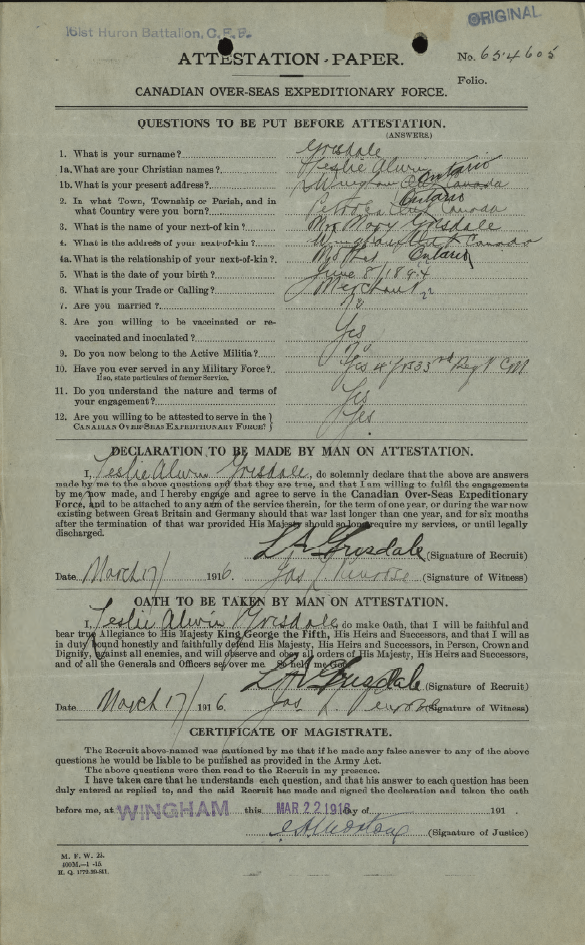 161st Huron Battalion, C.E.F.
ORIGINAL
ATTESTATION PAPER.
No. 654605
Folio.
CANADIAN OVER-SEAS EXPEDITIONARY FORCE.
QUESTIONS TO BE PUT BEFORE ATTESTATION.
(ANSWERS.)
1. What is your surname? Grisdale
1a. What are your Christian names? Leslie Alwin
1b. What is your present address? Wingham Ont Canada Ontario
2. In what Town, Township or Parish, and in
what Country were you born? Petrolea Ont Canada Ontario
3. What is the name of your next-of kin? Mrs Mary Grisdale
4. What is the address of your next-of-kin? Wingham Ont Canada
4a. What is the relationship of your next-of-kin? Ontario
5. What is the date of your birth? June 8/1894
6. What is your Trade or Calling? Merchant
22
7. Are you married? No
8. Are you willing to be vaccinated or re-
vaccinated and inoculated? Yes
9. Do you now belong to the Active Militia? No
10. Have you ever served in any Military Force? Yes 33rd Regt C.M.
If so, state particulars of former Service.
11. Do you understand the nature and terms of
your engagement? Yes
12. Are you willing to be attested to serve in the
CANADIAN OVER-SEAS EXPEDITIONARY FORCE? Yes
DECLARATION TO BE MADE BY MAN ON ATTESTATION.
I, Leslie Alwin Grisdale, do solemnly declare that the above are answers
made by me to the above questions and that they are true, and that I am willing to fulfil the engagements
by me now made, and I hereby engage and agree to serve in the Canadian Over-Seas Expeditionary
Force, and to be attached to any arm of the service therein, for the term of one year, or during the war now
existing between Great Britain and Germany should that war last longer than one year, and for six months
after the termination of that war provided His Majesty should so long require my services, or until legally
discharged.
L A Grisdale (Signature of Recruit)
Date March 17/ 1916. Jas (Signature of Witness)
OATH TO BE TAKEN BY MAN ON ATTESTATION.
I, Leslie Alwin Grisdale do make Oath, that I will be faithful and
bear true Allegiance to His Majesty King George the Fifth, His Heirs and Successors, and that I will as
in duty bound honestly and faithfully defend His Majesty, His Heirs and Successors, in Person, Crown and
Dignity, against all enemies, and will observe and obey all orders of His Majesty, His Heirs and Successors,
and of all the Generals and Officers set over me. So help me God.
L A Grisdale (Signature of Recruit)
Date March 17/ 1916 Jas (Signature of Witness)
CERTIFICATE OF MAGISTRATE.
The Recruit above-named was cautioned by me that if he made any false answer to any of the above
questions he would be liable to be punished as provided in the Army Act.
The above questions were then read to the Recruit in my presence.
I have taken care that he understands each question, and that his answer to each question has been
duly entered as replied to, and the said Recruit has made and signed the declaration and taken the oath
before me, at WINGHAM this MAR 22 1916 day of 191 .
(Signature of Justice)
M. F. W. 23.
H. Q. 1772-39-841.